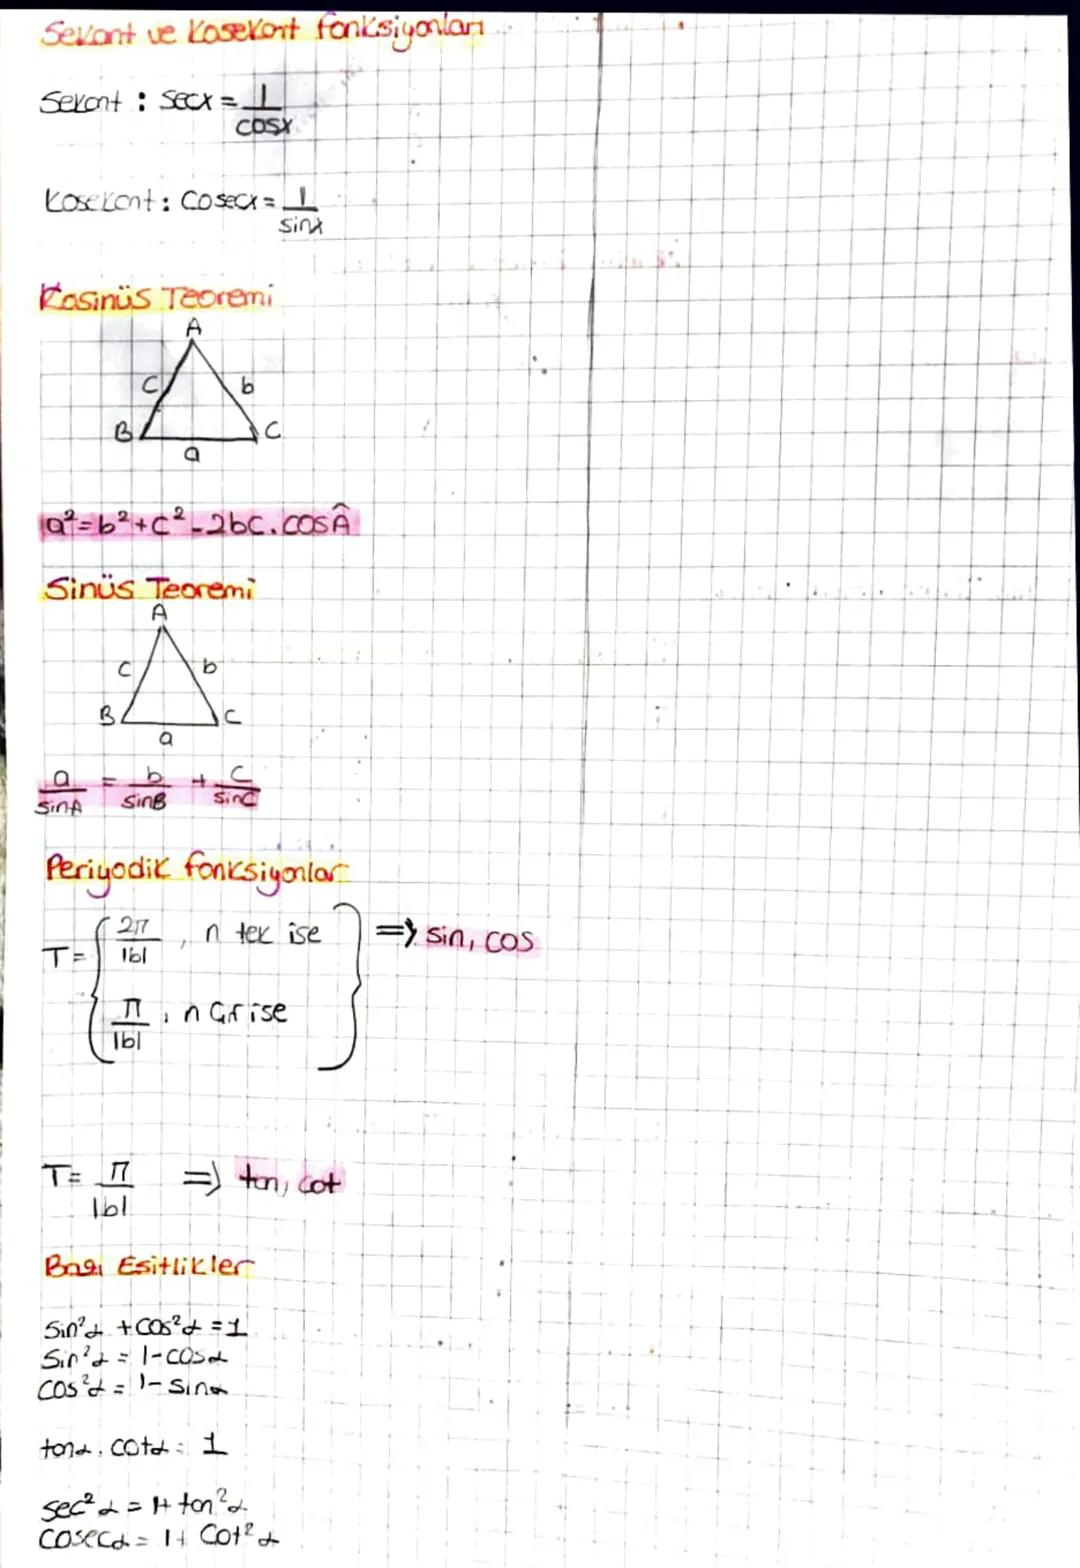 Sekant ve Kosekant fonksiyonları
Sekant : secx = 1/cosx
Kosekant : Cosecx = 1/sinx
Kosinüs Teoremi
A
c b
B C
a
a² = b² + c² - 2bc.cosÂ
Sinüs Teoremi
A
c b
B C
a
a/sinA = b/sinB + c/sinC
Periyodik fonksiyonlar
T = { 2π/|b| , n tek ise } => sin, cos
π/|b| , n çift ise
T = π/|b| => tan, cot
Bazı Esitlikler
Sin²α + cos²α = 1
Sin²α = 1-cosα
cos²α = 1-sinα
tanα . cotα = 1
sec²α = 1+ tan²α
cosecα = 1+ cot²α